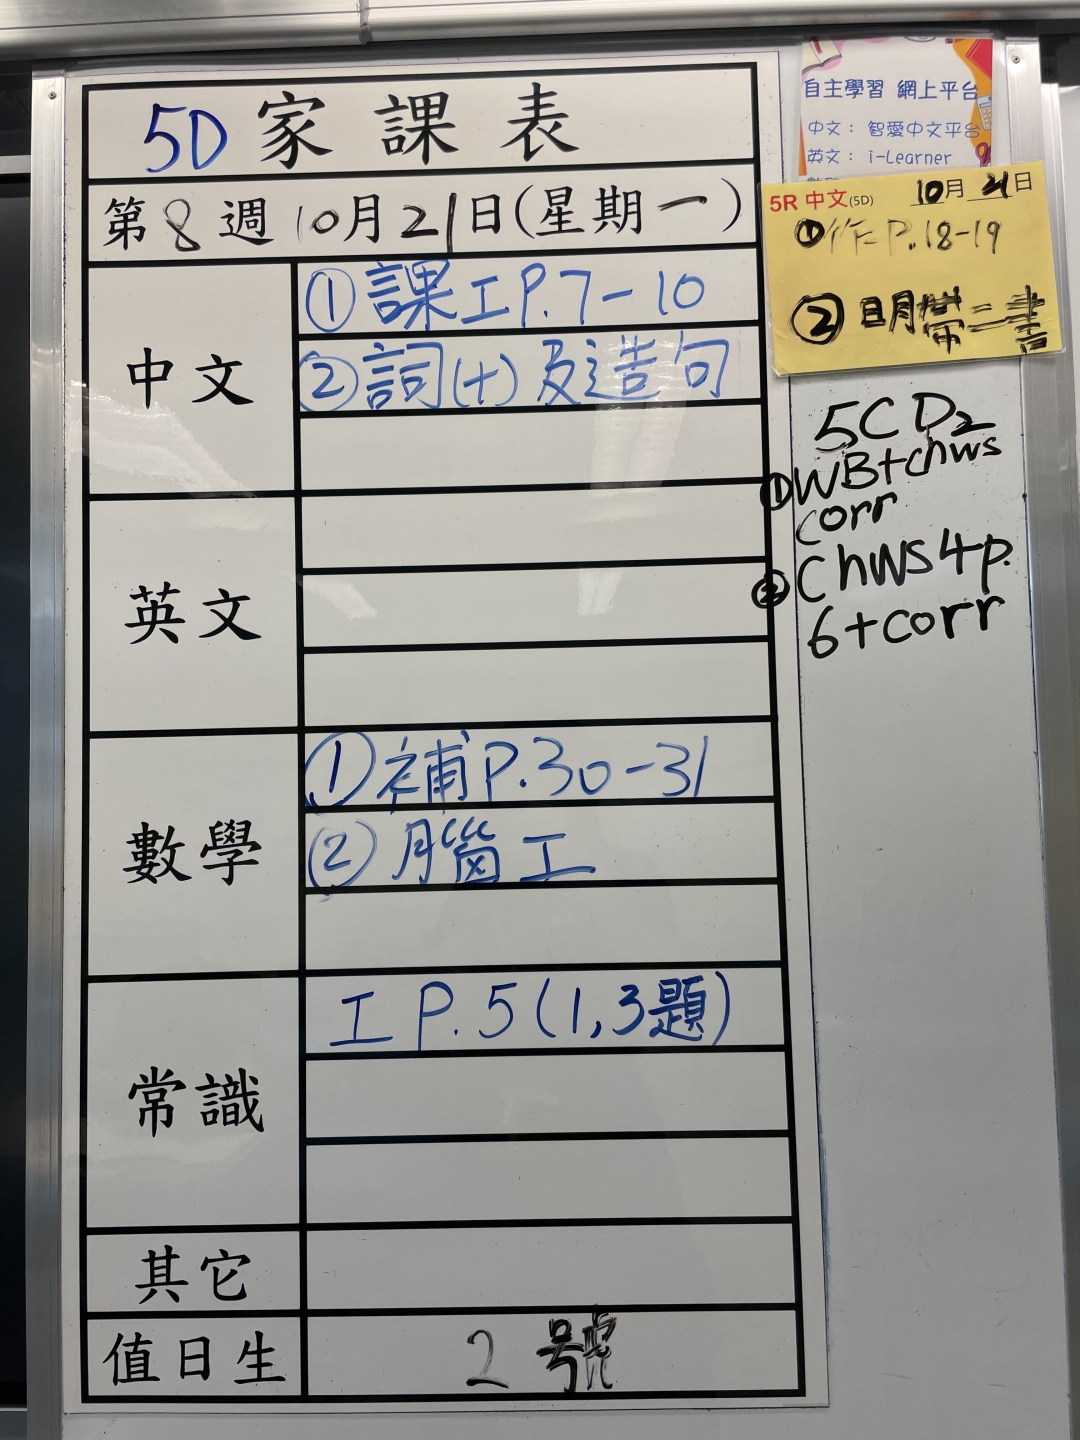 5D家課表
第8週10月21日(星期一)
中文
①課工P.7-10
②詞(十)及造句
英文
數學
①補P.30-31
②腦工
常識
工P.5(1,3題)
其它
值日生
2號
自主學習 網上平台
中文：智愛中文平台
英文：i-Learner
5R中文(5D) 10月21日
①作P.18-19
②明帶二書
5CD2
①WB+chws
corr
②ChWS4p.
6+corr